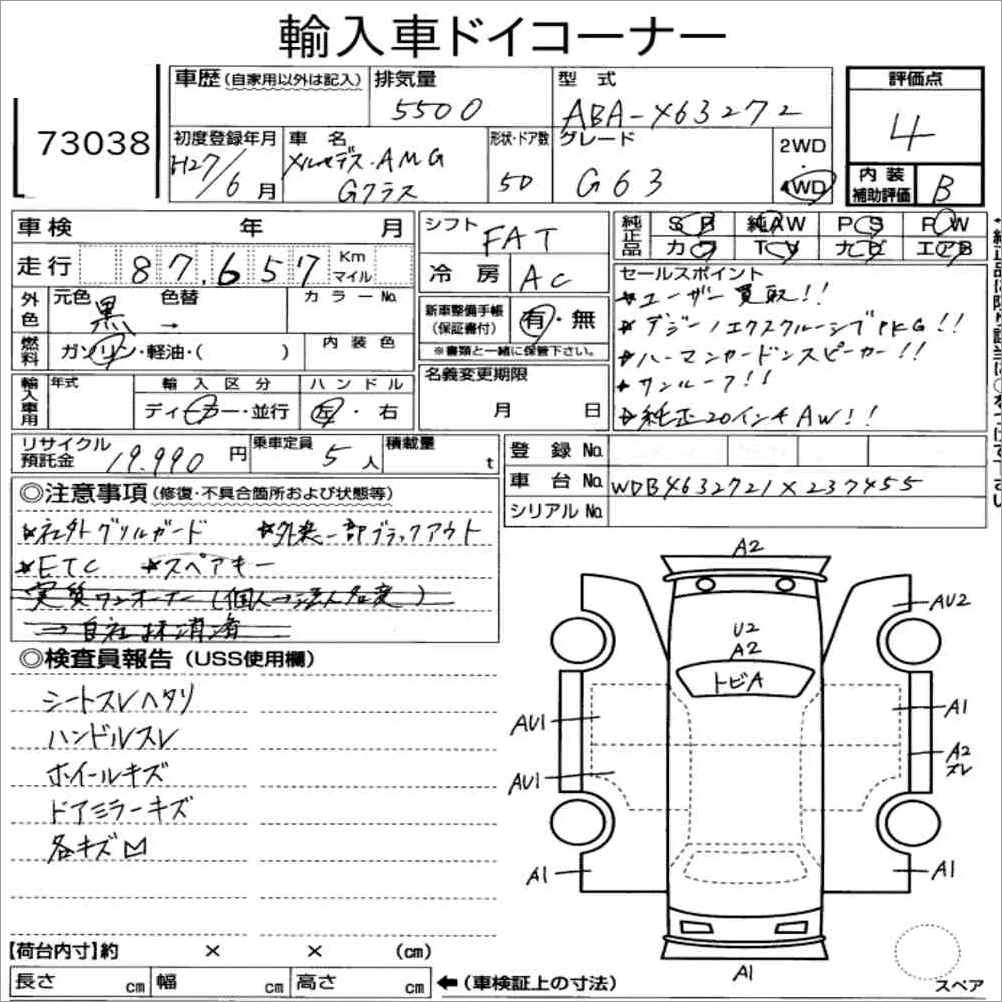 輸入車ドイコーナー
73038
車歴 (自家用以外は記入) 排気量 5500
型式 ABA-463272
評価点 4
初度登録年月 H27/6月
車名 メルセデス・AMG
Gクラス
形状・ドア数 5D
グレード G63
2WD・4WD
内装補助評価 B
車検 年 月
シフト FAT
純正品 SR 純AW PS PW
カワ TV ナビ エアB
走行 87.657 Km マイル
冷房 AC
セールスポイント
★ユーザー買取!!
★デジーノエクスクルーシブPKG!!
★ハーマンカードンスピーカー!!
★サンルーフ!!
★純正20インチAW!!
外色 元色 黒 → 色替 カラーNo.
新車整備手帳(保証書付) 有・無
※書類と一緒に保管下さい。
燃料 ガソリン・軽油・( ) 内装色
輸入車用 年式 輸入区分 ディーラー・並行 ハンドル 左・右
名義変更期限 月 日
リサイクル預託金 19.990円 乗車定員 5人 積載量 t
登録No.
車台No. WDB4632721X237455
シリアルNo.
◎注意事項(修復・不具合箇所および状態等)
★社外グリルガード ★外装一部ブラックアウト
★ETC ★スペアキー
実質ワンオーナー(個人→法人名変)
→自社抹消済
◎検査員報告(USS使用欄)
シートスレヘタリ
ハンドルスレ
ホイールキズ
ドアミラーキズ
各キズ凹
A2
AU2
U2
A2
トビA
AU1
A1
A2
スレ
AU1
A1
A1
A1
スペア
【荷台内寸】約 × × (cm)
長さ cm 幅 cm 高さ cm ←(車検証上の寸法)